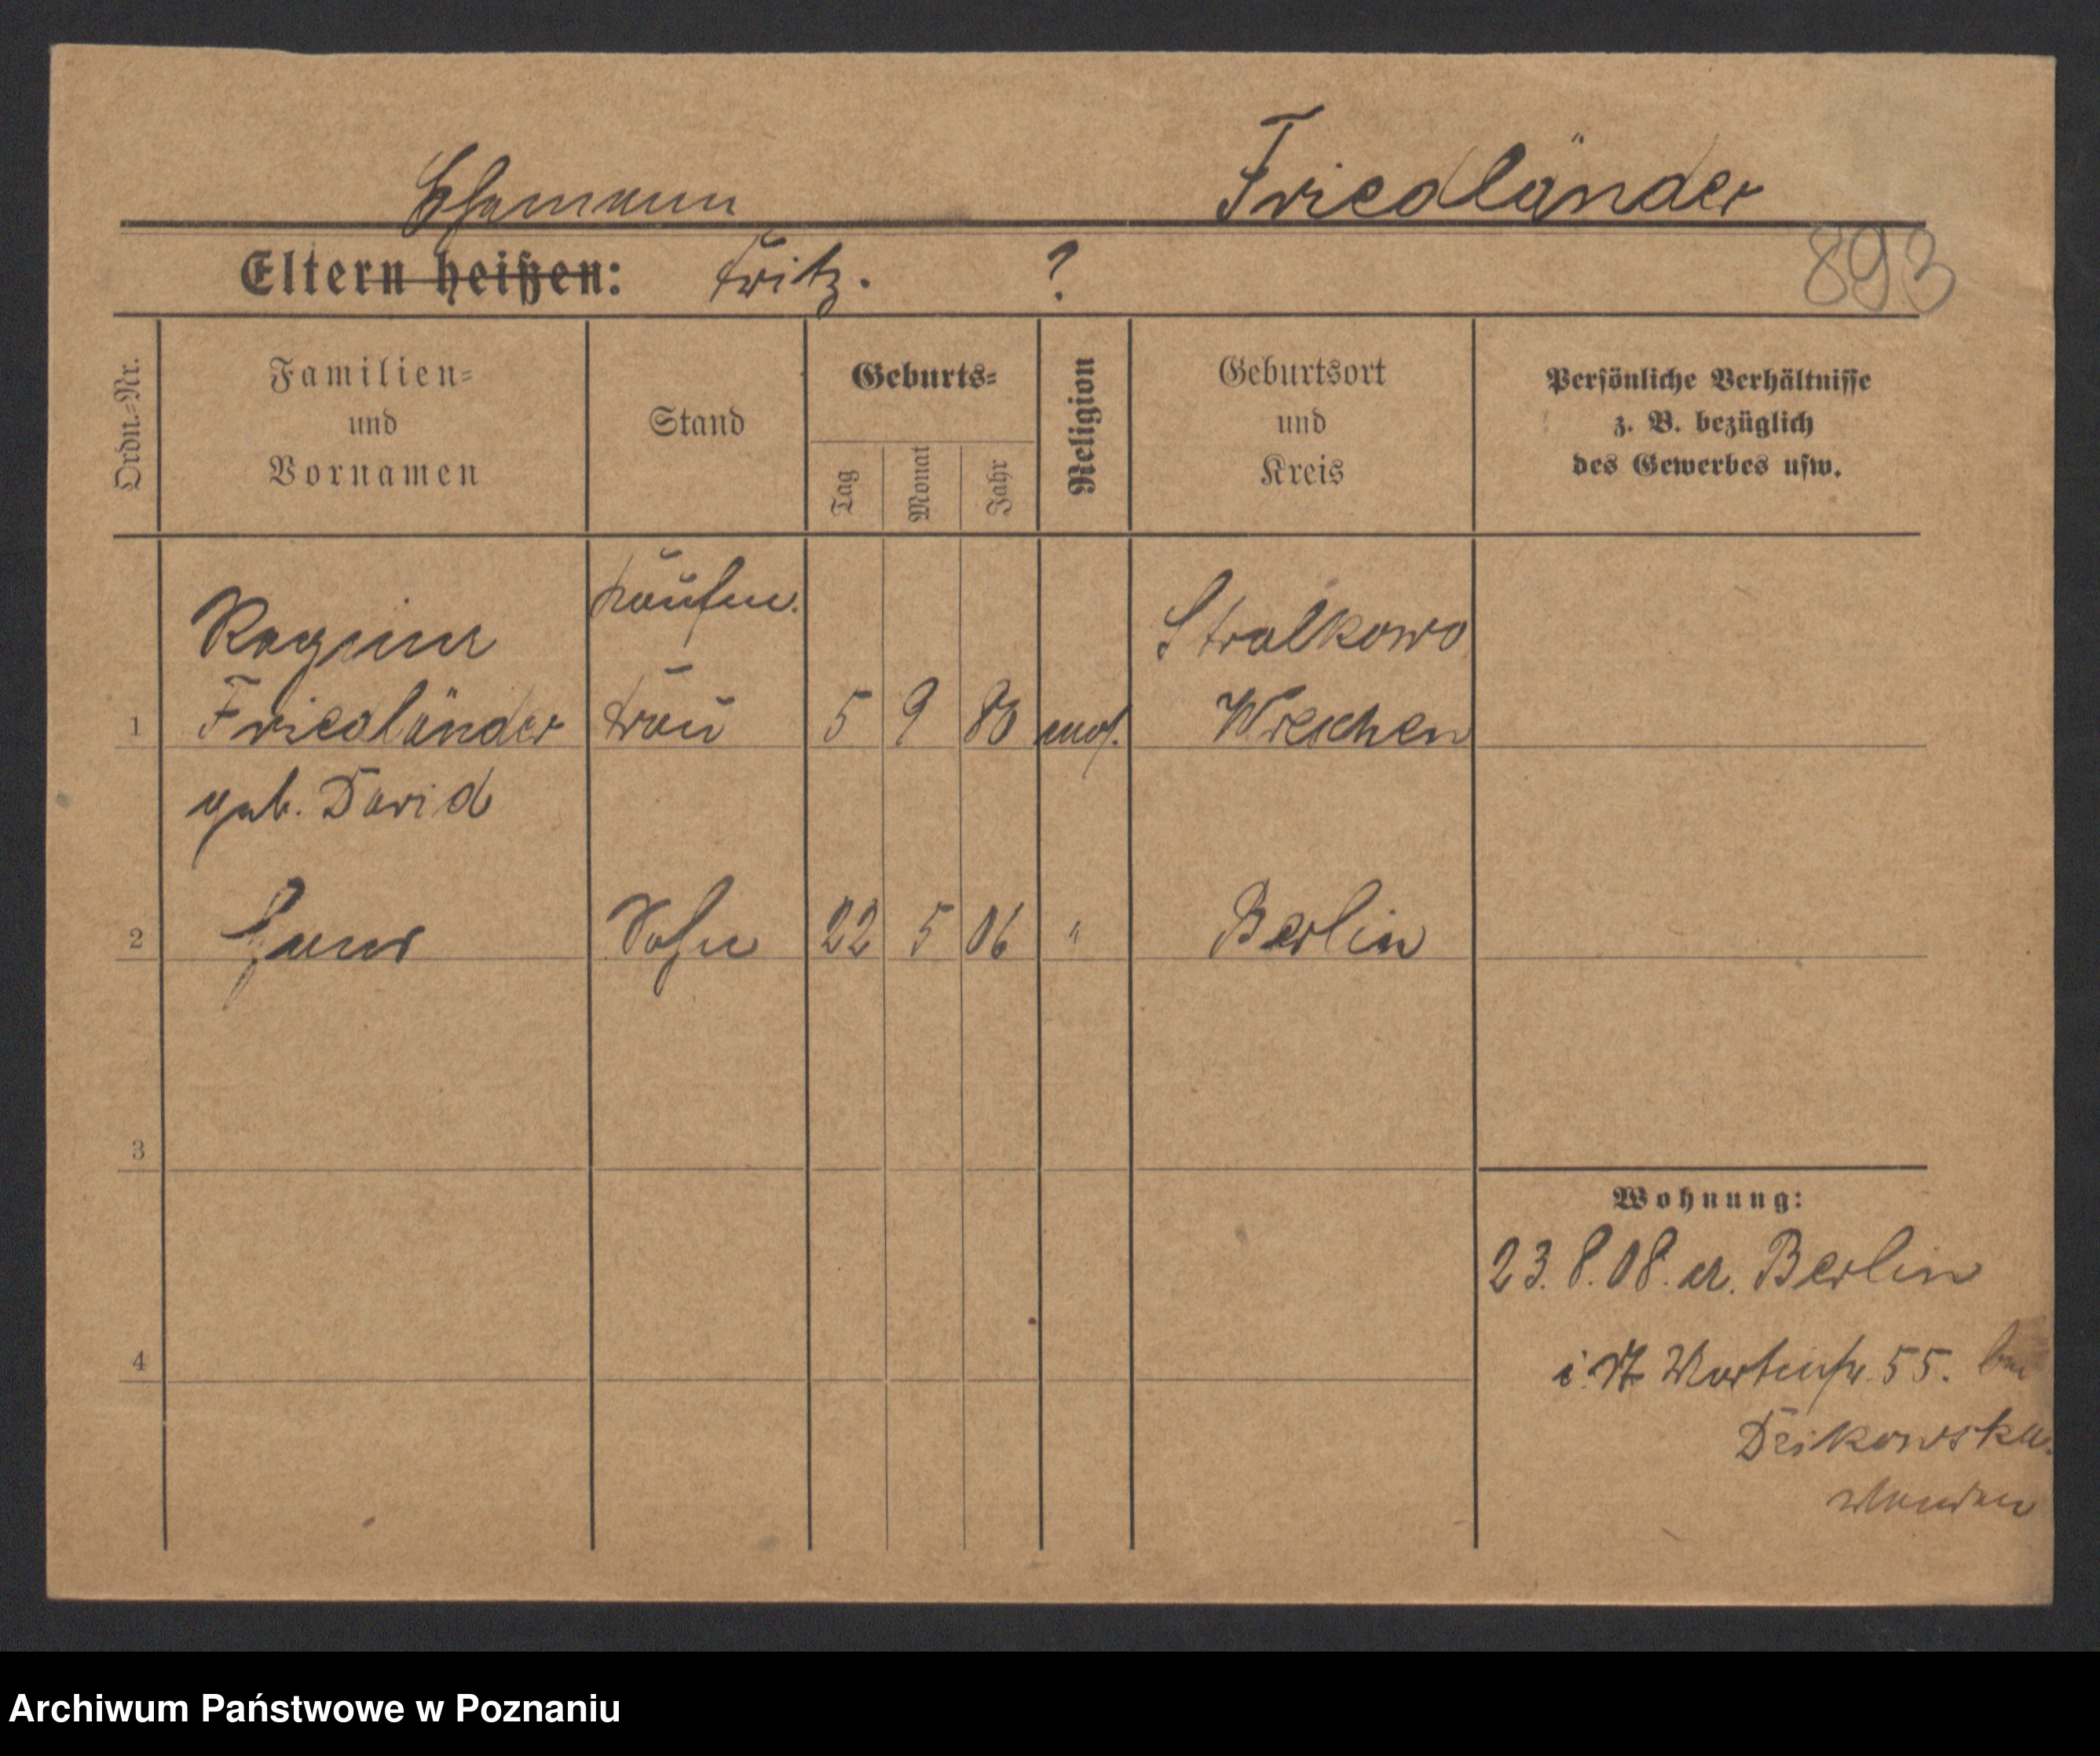 Ehemann Friedländer
Eltern heißen: Fritz. ?
893
Ordn.-Nr.
Familien-
und
Vornamen
Stand
Geburts-
Tag
Monat
Jahr
Religion
Geburtsort
und
Kreis
Persönliche Verhältnisse
z. B. bezüglich
des Gewerbes usw.
Kaufm. 
Regina Stralkowo
1 Friedländer frau 5 9 80 mos. Wreschen
geb. David
2 Hans Sohn 22 5 06 " Berlin
3
4
Wohnung:
23. 8. 08. a. Berlin
55. bei